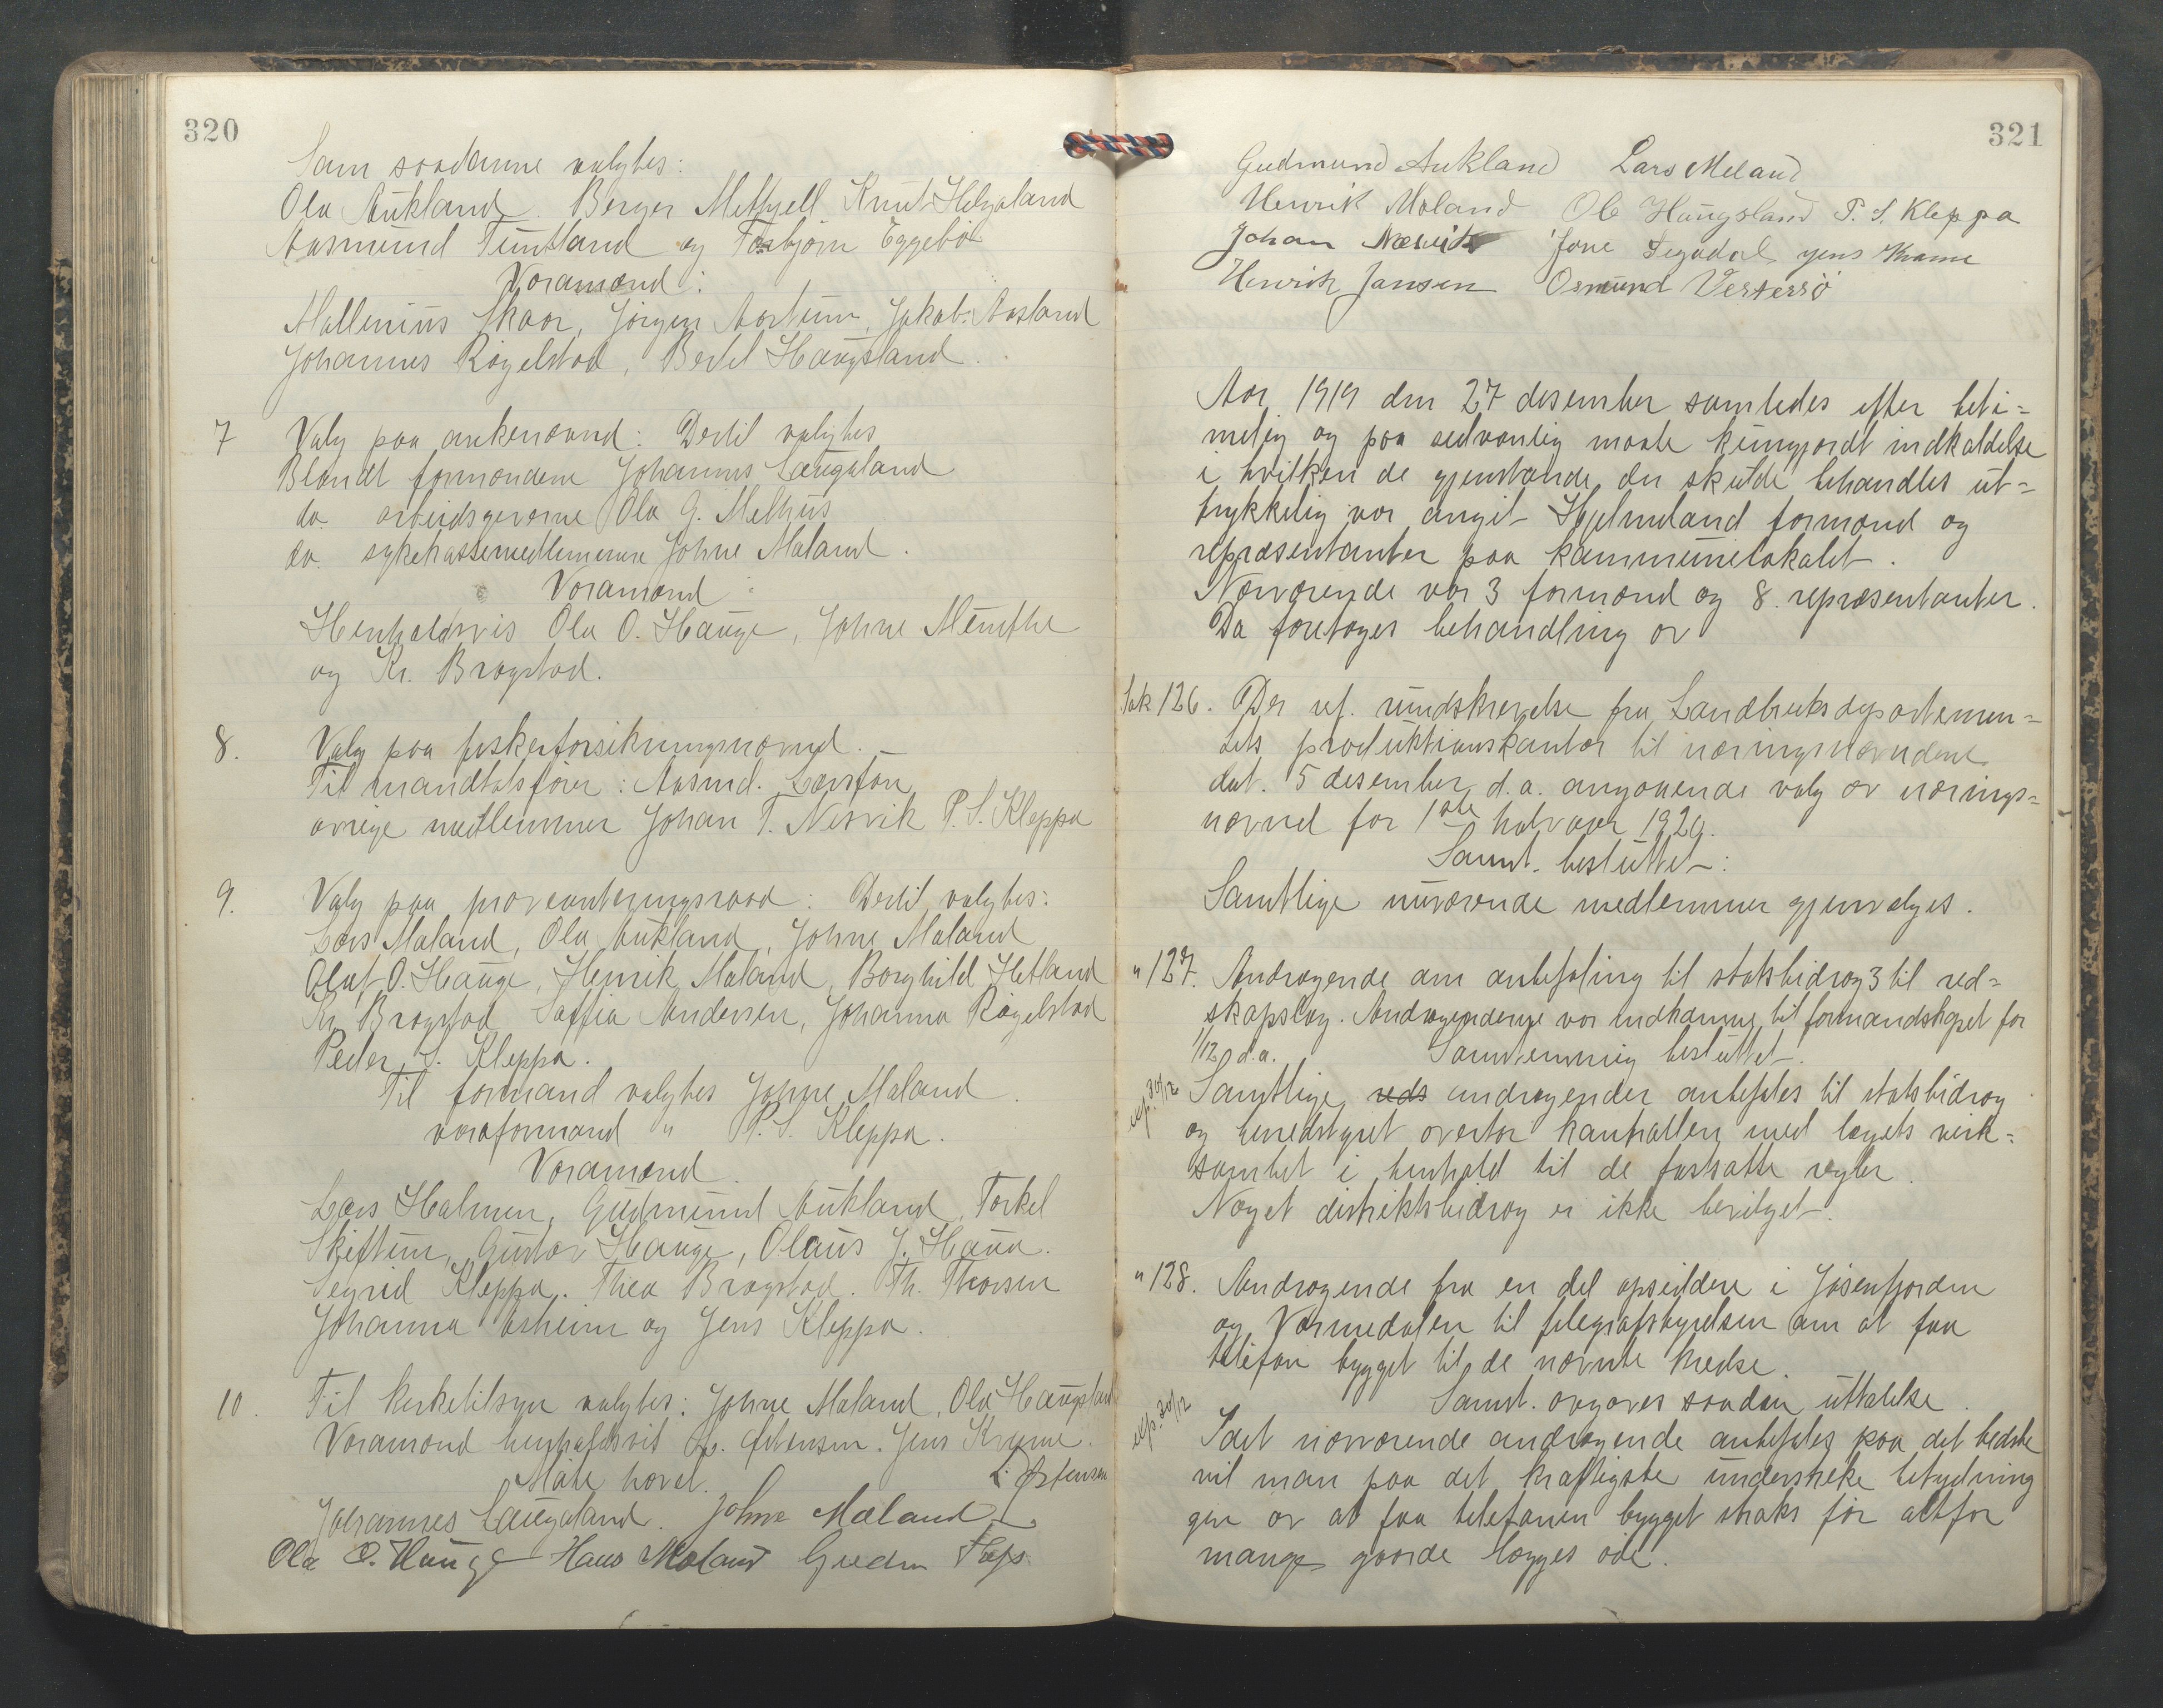 320
Som saadanne valgtes:
Ola Aukland. Berger Mettyell Knut Helgaland
Aasmund Tuntland og Torbjørn Eggebø
Varamænd:
Mallenius Skaar, Jørgen Aartun, Jakob Aasland
Johannes Røgelstad, Bertel Haugsland.
7 Valg paa ankenævnd: Dertil valgtes
Blandt formændene Johannes Laugaland
do. arbeidsgiverne Ola G. Melhus
do. sykekassemedlemmene Johne Mæland.
Varamænd
Henholdsvis Ola O. Hauge, Johne Munthe
og Kr. Bragstad.
8. Valg paa fiskerforsikringsnævnd. –
Til mandtalsfører: Aasmd. Løvsføn
øvrige medlemmer Johan T. Nesvik P. S. Kleppa
9. Valg paa provianteringsraad: Dertil valgtes:
Lars Mæland, Ola Aukland, Johne Mæland
Olut O. Hauge, Henrik Mæland, Borghild Hetland
Kr. Bragstad Saffia Andersen, Johanna Røgelstad
Peder S. Kleppa.
Til formand valgtes Johne Mæland.
varaformand " P. S. Kleppa.
Varamænd.
Lars Halmen, Gudmund Aukland, Torkel
Skiftun, Gustav Hauge, Olaus J. Hauge.
Segrid Kleppa. Thea Bragstad. Th. Thorsen
Johanna Asheim og Jens Kleppa.
10. Til kirketilsyn valgtes: Johne Mæland, Ola Haugsland
Varamænd henholdsvis L. Østensen. Jens Krame.
Møte hævet. L. Østensen
Johannes Laugaland. Johne Mæland
Ola O. Hauge Hans Mæland Gudm
321
Gudmund Aukland Lars Meland
Henrik Mæland Ole Haugsland P. S. Kleppa
Johan Næsvik Jone Segadal Jens Krame
Henrik Jansen Osmund Vestersjø
Aar 1919 den 27 desember samledes efter beti=
melig og paa sedvanlig maate kungjordt indkaldelse
i hvilken de gjenstande, der skulde behandles ut=
trykkelig var angit Hjelmeland formænd og
repræsentanter paa kommunelokalet.
Nærværende var 3 formænd og 8. repræsentanter.
Da foretoges behandling av
Sak 126. Der ref. rundskrivelse fra Landbruksdepartemen=
tets produktionskontor til næringsnævndene
dat. 5 desember d.a. angaaende valg av nærings=
nævnd for 1ste halvaar 1920.
Samt. besluttet:
Samtlige nuværende medlemmer gjenvalges.
" 127. Andragende om anbefaling til statsbidrag 3 til red=
skapslag. Andragendene var indkomne til formandskapet før
1/12 d.a. Samstemmig besluttet.
exp. 30/12 Samtlige reds andragender anbefales til statsbidrag
og herredstyret overtar kontrollen med lagets virk=
somhet i henhold til de fastsatte regler.
Noget distriktsbidrag er ikke bevilget.
" 128. Andragende fra en del opsiddere i Jøsenfjorden
og Vormedalen til telegrafstyrelsen om at faa
telefon bygget til de nævnte kredse.
Samt. avgaves saadan uttalelse.
exp. 30/12 Idet nærværende andragende anbefales paa det bedste
vil man paa det kraftigste understreke betydning
gen av at faa telefonen bygget straks før altfor
mange gaarde lægges øde.